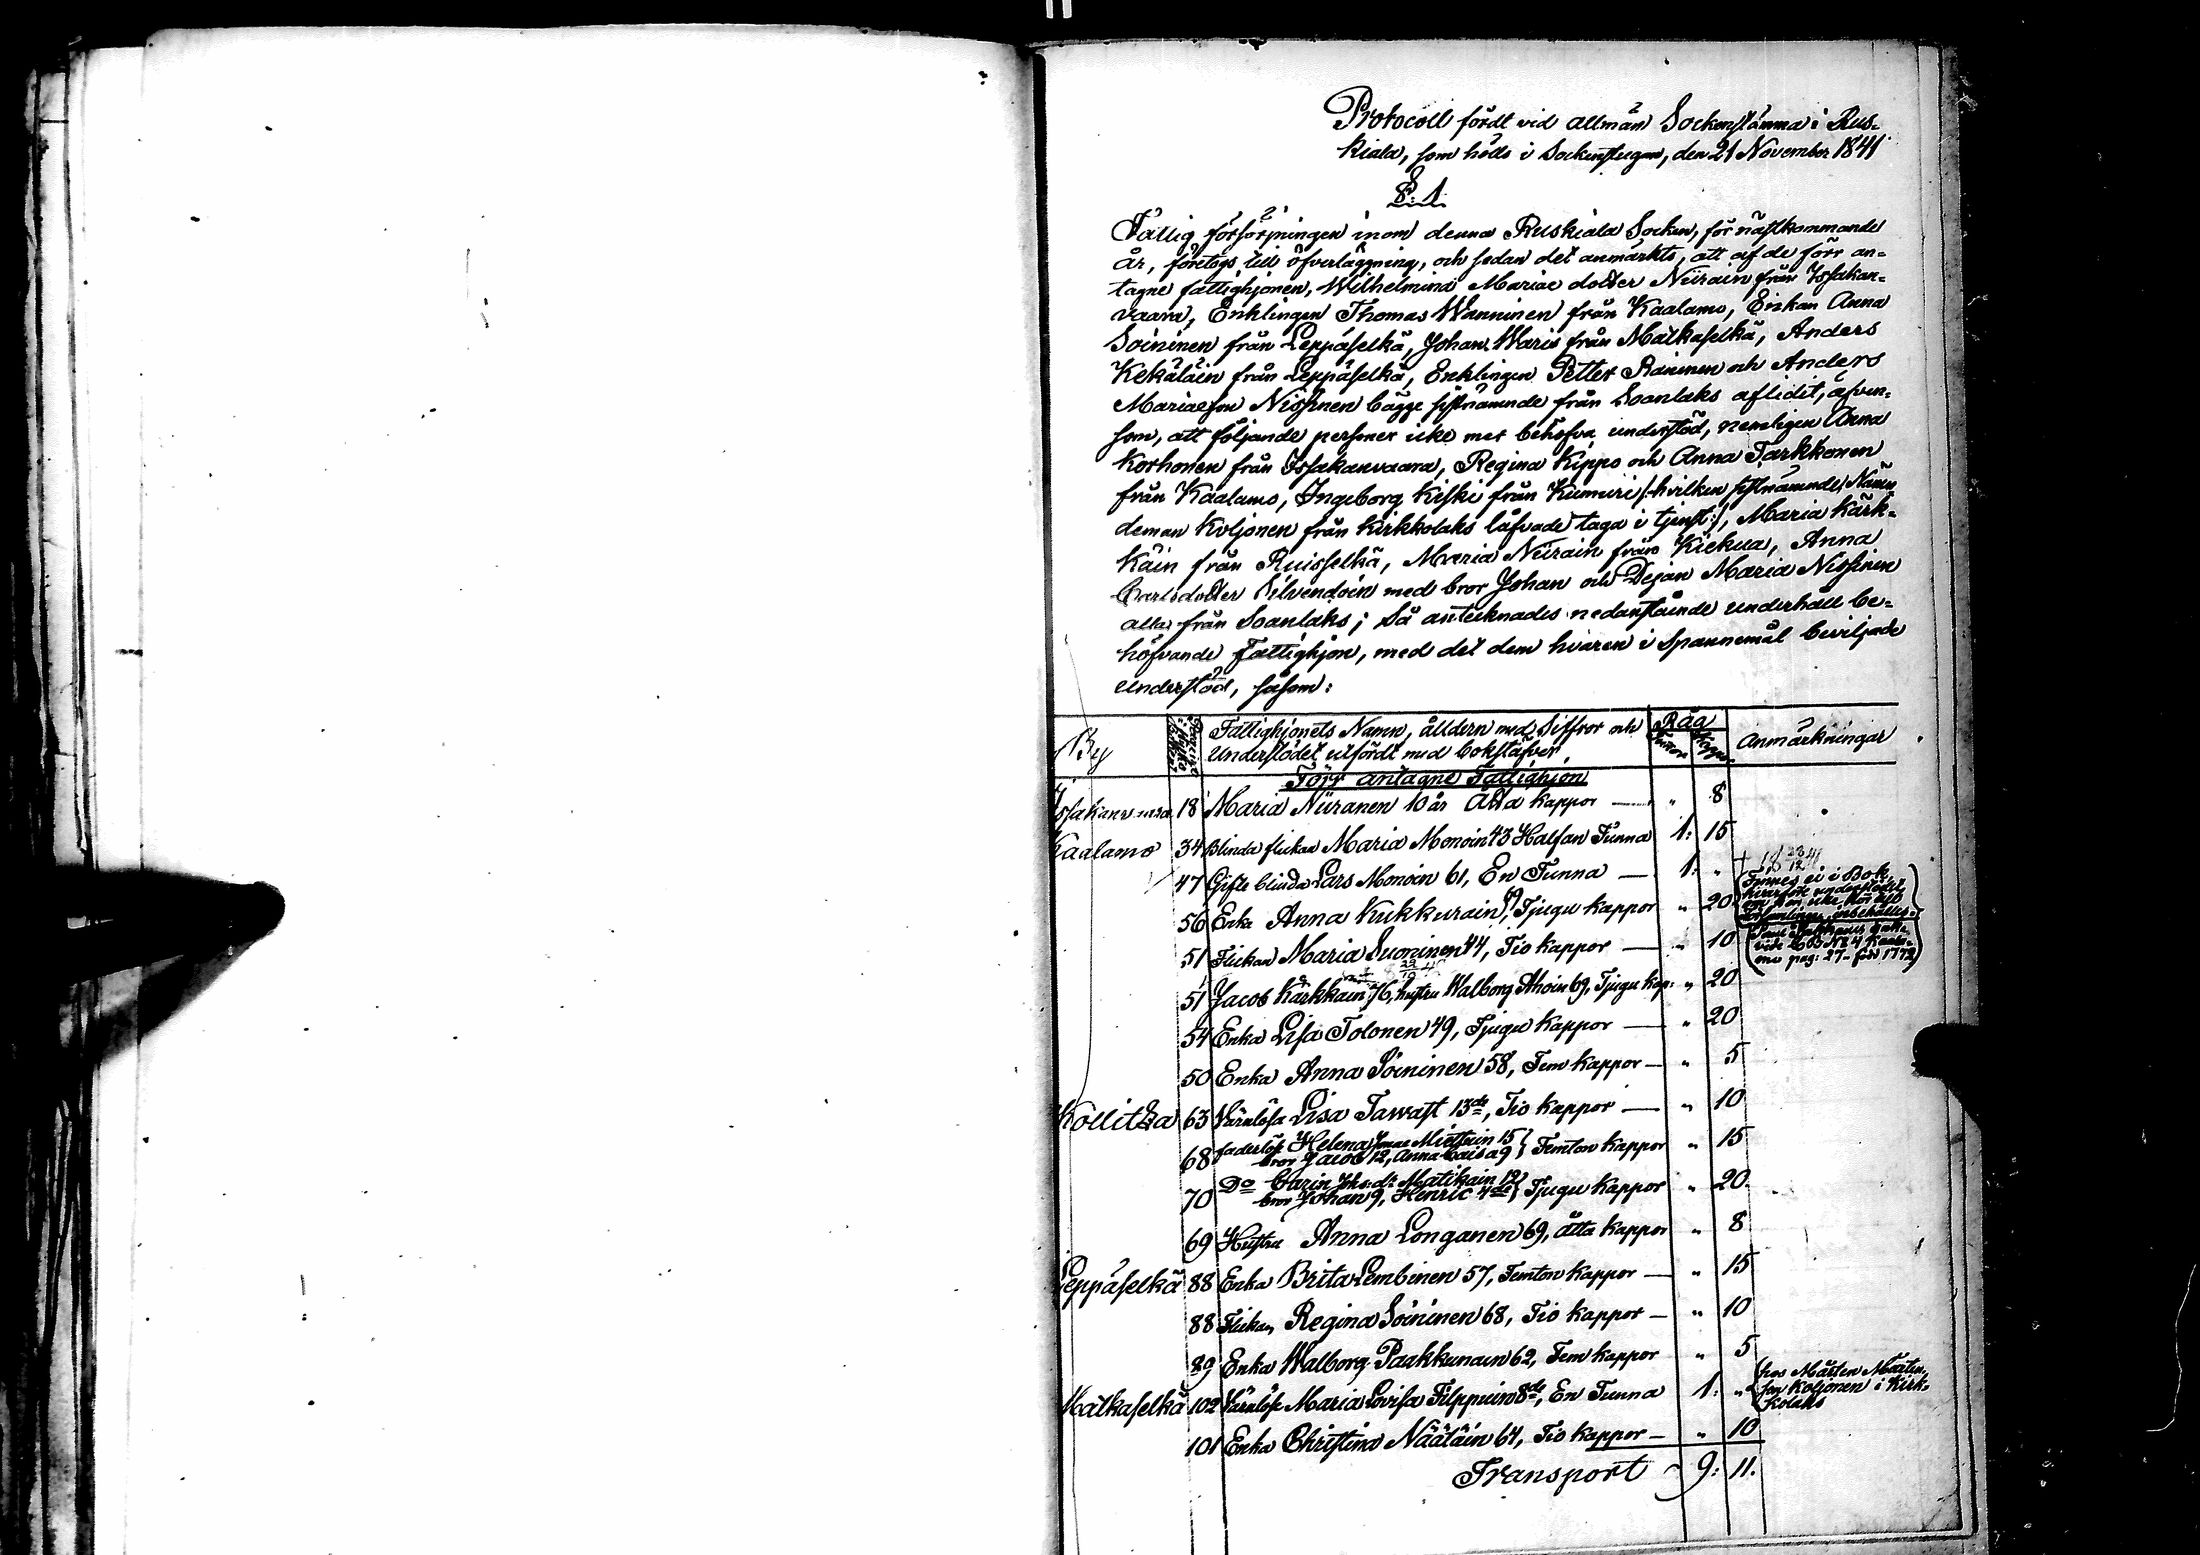 Protocoll fördt vid allmän Sockenstämma i Rus-
kiala, som hölls i Sockenstugan, den 21 November 1841
§. 1.
Fattig försörjningen inom denna Ruskiala Socken, för nästkommande
år, företogs till öfverläggning, och sedan det anmärkts, att af de förr an-
tagne fattighjonen, Wilhelmina Mariae dotter Niirain från Issakan-
vaara, Enklingen Thomas Wanninen från Kaalamo, Enkan Anna
Soininen från Leppäselkä, Johan Waris från Matkaselkä, Anders
Kekäläin från Leppäselkä, Enklingen Petter Raninen och Anders
Mariaeson Nissinen bägge sistnämnde från Soanlaks aflidit, äfven-
som, att följande personer icke mer behöfva understöd, nemligen Anna
Korhonen från Issakanvaara, Regina Kippo och Anna Tarkkonen
från Kaalamo, Ingeborg Kiski från Kumuri /:hvilken sistnämnde Nämn-
deman Koljonen från Kirkkolaks låfvade taga i tjenst:/, Maria Kärk-
käin från Ruisselkä, Maria Niirain från Kiekua, Anna
Carlsdotter Silvendoin med bror Johan och Pejan Maria Nissinen
alla från Soanlaks; Så antecknades nedanstående underhåll be-
höfvande Fattighjon, med det dem hvaren i Spannemål beviljade
understöd, såsom:
By Fattighjonets Namn, ålldern med Siffror och Råg Anmärkningar
Understödet utfördt med bokstäfver. Tunnor Kappor
Förr antagne Fattighjon
Issakanvaara 18 Maria Niiranen 10 år Åtta kappor — " 8
Kaalamo 34 Blinda flickan Maria Monoin 43 Halfan Tunna 1: 15
47 Gifte blinda Lars Monoin 61, En Tunna — 1: "
56 Enka Anna Kukkurain, Tjugu kappor " 20 Finnes ei i Bok,
hvarföre understödet
om hon icke hör till
Församlingen inbehålles.
51 Flickan Maria Suoninen 44, Tio kappor — " 10
vide N:o 4 Kaala-
mo pag: 27 - född 1772
51 Jacob Kärkkäin 76, hustru Walborg Ahoin 69, Tjugu kap: " 20
54 Enka Lisa Tolonen 49, Tjugu kappor — " 20
50 Enka Anna Soininen 58, Fem kappor — " 5
Kollitza 63 Värnlösa Lisa Tawast 13de, Tio kappor — " 10
68 faderlös Helena Jonae Miettain 15
bror Jacob 12, Anna Caisa 9 } Femton kappor " 15
70 Do Carin Joh:dr Matikain 12
bror Johan 9, Henric 4de } Tjugu kappor " 20
69 Hustru Anna Longanen 69, åtta kappor " 8
Leppäselkä 88 Enka Brita Lembinen 57, Femton kappor — " 15
88 Flickan Regina Soininen 68, Tio kappor — " 10
89 Enka Walborg Paakkunain 62, Fem kappor " 5
Matkaselkä 102 Värnlöse Maria Lovisa Filppuin 8de, En Tunna 1: " hos Mårten Mårten-
son Koljonen i Kirk-
kolaks
101 Enka Christina Nääläin 64, Tio kappor — " 10
Transport 9: 11.